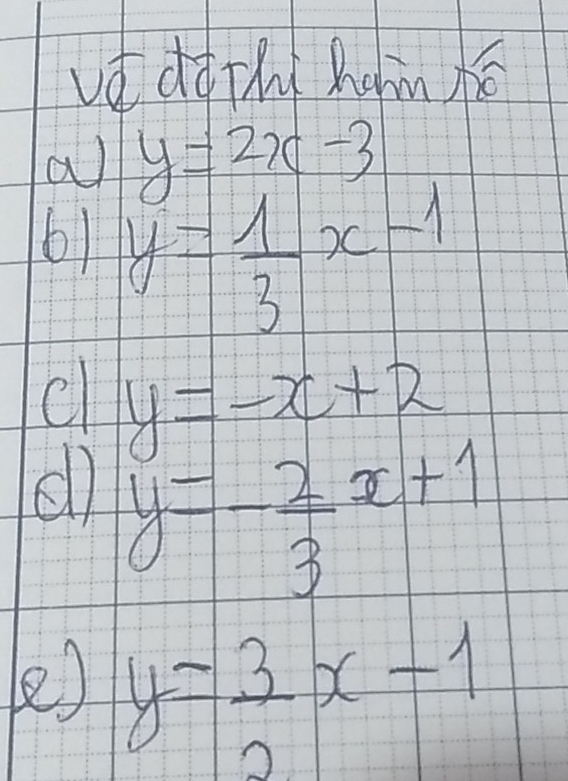 Vẽ đồ thị hàm số
a) y = 2x - 3
b) y = 1/3 x - 1
c) y = -x + 2
d) y = -2/3 x + 1
e) y = 3/2 x - 1